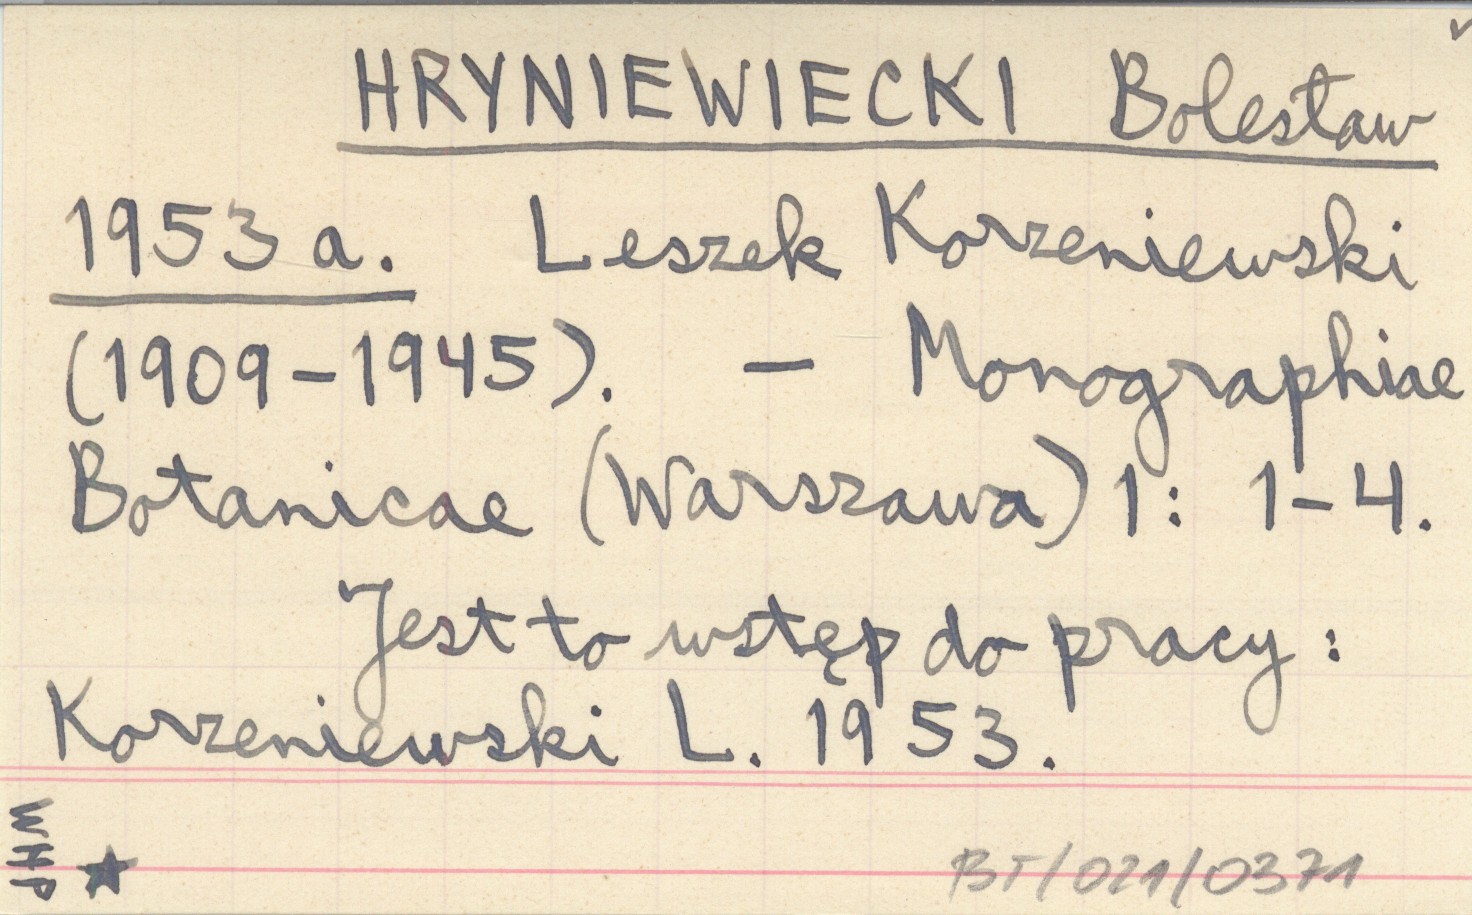 HRYNIEWIECKI Bolesław
1953a. Leszek Korzeniewski
(1909-1945). — Monographiae
Botanicae (Warszawa) 1: 1-4.
Jest to wstęp do pracy:
Korzeniewski L. 1953.
WHP ★
BT/021/0371